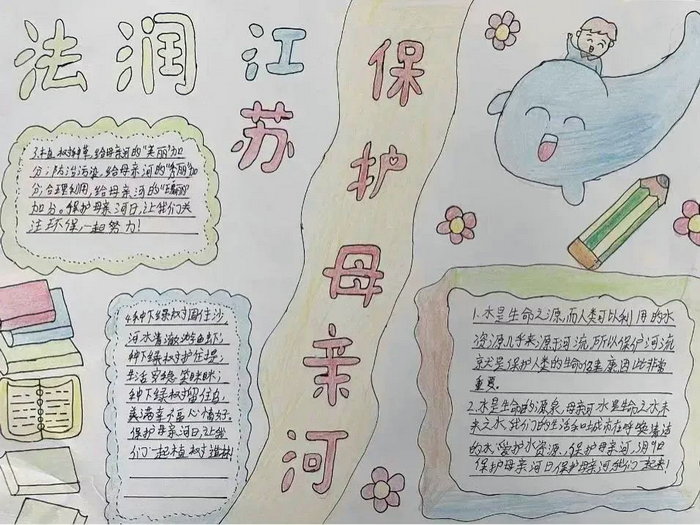 法润江苏
保护母亲河
3.植树种草,给母亲河的"美丽"加
分;防治污染,给母亲河的"秀丽"加
分;合理利用,给母亲河的"
加分。保护母亲河日,让我们关
注环保,一起努力!
4.种下绿树固住沙,
河水清澈
种下绿树护住堤,
生活安稳笑眯眯;
种下绿树留住鸟,
美满幸福心情好。
保护母亲河日,让我
们一起植树
1.水是生命之源,而人类可以利用的水
资源几乎来源于河流,所以保护河流
就是保护人类的生命健康,因此非常
重要。
2.水是生命的源泉,母亲河水是生命之水未
来之水,我们的生活和城市在呼唤清洁
的水,爱护水资源,保护母亲河,3月9日
保护母亲河日保护母亲河我们一起来!